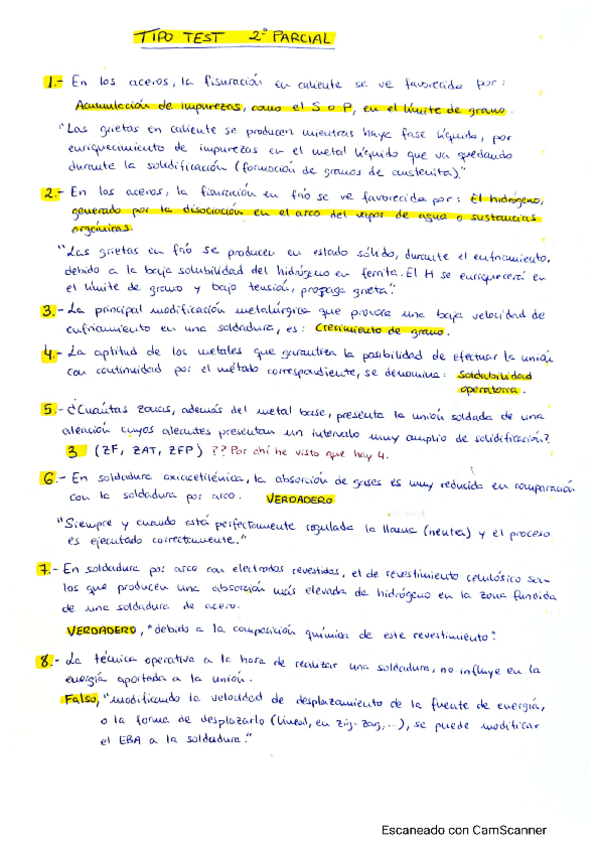 TIPO TEST 2º PARCIAL
1.- En los aceros, la fisuración en caliente se ve favorecida por:
Acumulación de impurezas, como el S o P, en el límite de grano.
"Las grietas en caliente se producen mientras haya fase líquida, por
enriquecimiento de impurezas en el metal líquido que va quedando
durante la solidificación (formación de granos de austenita)."
2.- En los aceros, la fisuración en frío se ve favorecida por: El hidrógeno,
generado por la disociación en el arco del vapor de agua o sustancias
orgánicas.
"Las grietas en frío se producen en estado sólido, durante el enfriamiento,
debido a la baja solubilidad del hidrógeno en ferrita. El H se enriquecerá en
el límite de grano y bajo tensión, propaga grieta."
3.- La principal modificación metalúrgica que provoca una baja velocidad de
enfriamiento en una soldadura, es: Crecimiento de grano.
4.- La aptitud de los metales que garantiza la posibilidad de efectuar la unión
con continuidad por el método correspondiente, se denomina: Soldabilidad
operatoria.
5.- ¿Cuántas zonas, además del metal base, presenta la unión soldada de una
aleación cuyos aleantes presentan un intervalo muy amplio de solidificación?
3 (ZF, ZAT, ZFP) ?? Por ahí he visto que hay 4.
6.- En soldadura oxiacetilénica, la absorción de gases es muy reducida en comparación
con la soldadura por arco. VERDADERO
"Siempre y cuando está perfectamente regulada la llama (neutra) y el proceso
es ejecutado correctamente."
7.- En soldadura por arco con electrodos revestidos, el de revestimiento celulósico son
los que producen una absorción más elevada de hidrógeno en la zona fundida
de una soldadura de acero.
VERDADERO, "debido a la composición química de este revestimiento".
8.- La técnica operativa a la hora de realizar una soldadura, no influye en la
energía aportada a la unión.
Falso, "modificando la velocidad de desplazamiento de la fuente de energía,
o la forma de desplazarlo (lineal, en zig-zag,...), se puede modificar
el EBA a la soldadura."
Escaneado con CamScanner